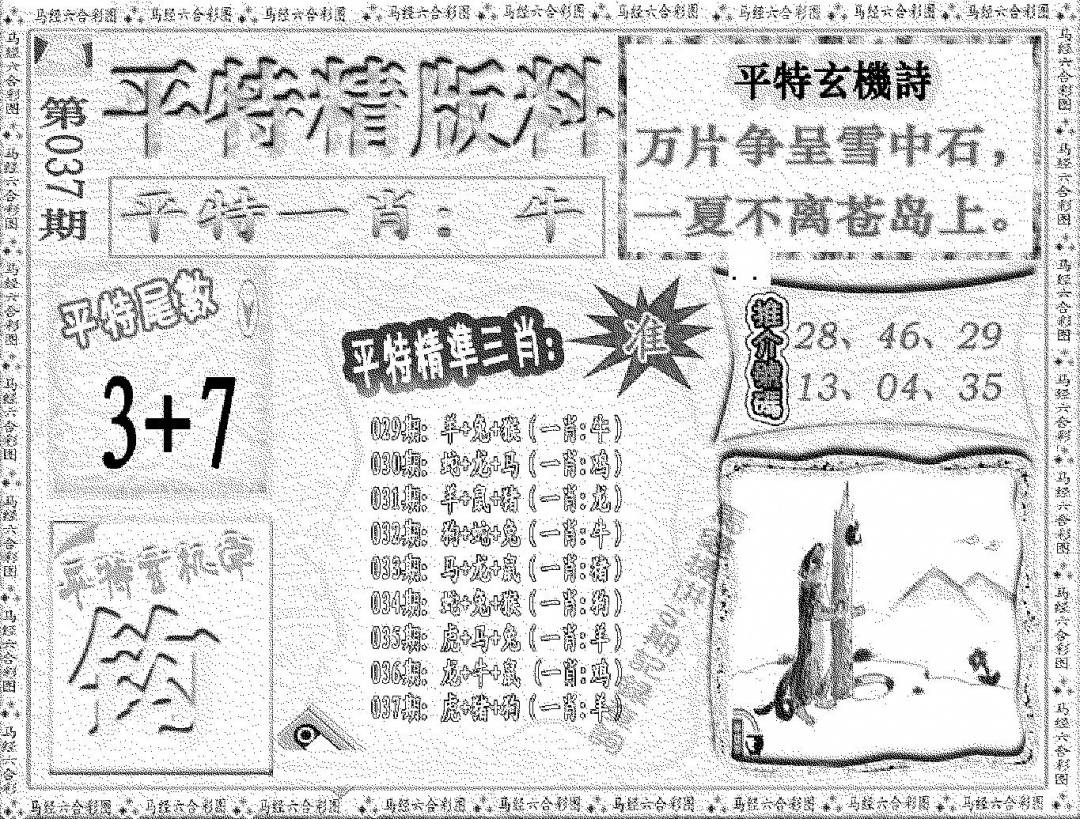 马经六合彩图 马经六合彩图 马经六合彩图 马经六合彩图 马经六合彩图 马经六合彩图 马经六合彩图 马经六合彩图 马经六合彩图
第037期
平特精版料
平特一肖：牛
平特玄機詩
万片争呈雪中石，
一夏不离苍岛上。
平特尾数
3+7
平特精準三肖:
准
推介號碼
28、46、29
13、04、35
029期: 羊+兔+猴(一肖:牛)
030期: 蛇+龙+马(一肖:鸡)
031期: 羊+鼠+猪(一肖:龙)
032期: 狗+蛇+兔(一肖:牛)
033期: 马+龙+鼠(一肖:猪)
034期: 蛇+兔+猴(一肖:狗)
035期: 虎+马+兔(一肖:羊)
036期: 龙+牛+鼠(一肖:鸡)
037期: 虎+猪+狗(一肖:羊)
平特玄机字
马经六合彩图 马经六合彩图 马经六合彩图 马经六合彩图 马经六合彩图 马经六合彩图 马经六合彩图 马经六合彩图 马经六合彩图